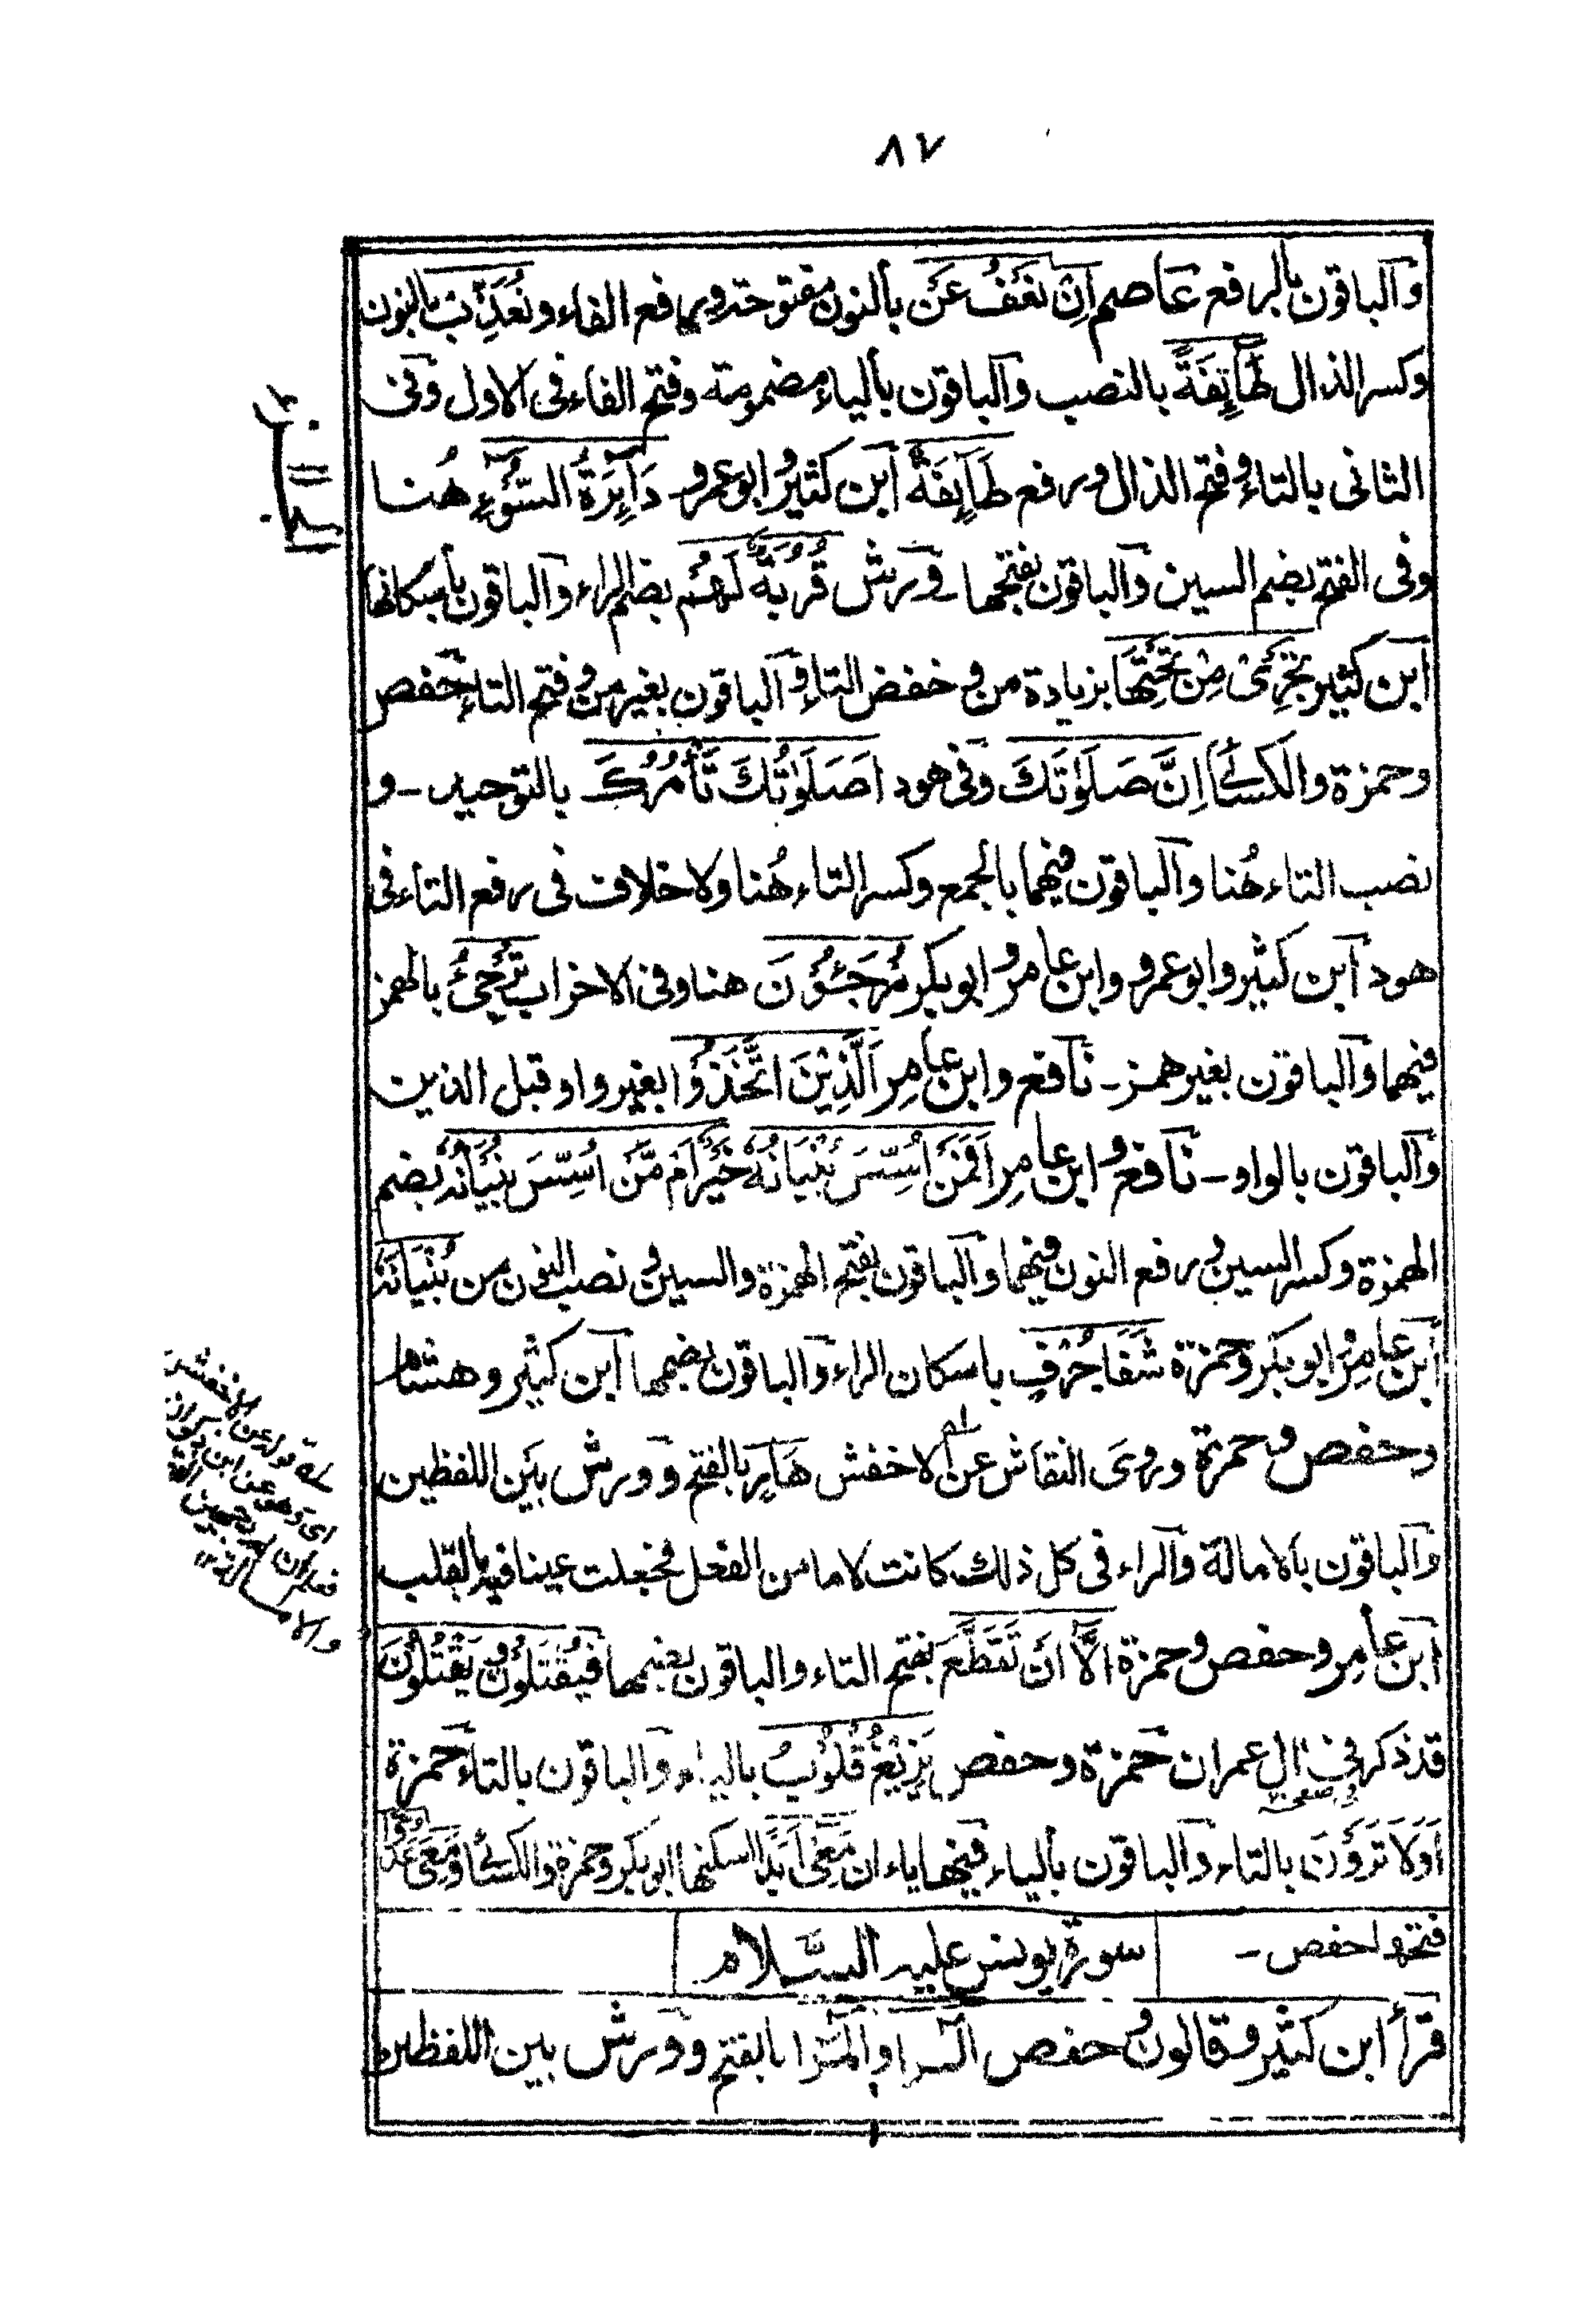 ٨٧
والباقون بالرفع عاصم اِنْ نَعْفُ عَنْ بالنون مفتوحة ورفع الفاء ونُعَذِّبْ بالنون
وكسر الذال طَآئِفَةً بالنصب والباقون بالياء مضمومة وفتح الفاء في الاول وفي
الثاني بالتاء وفتح الذال ورفع طَآئِفَةٌ ابن كثير وابو عمرو دَآئِرَةُ السُّوْءِ هُنا
وفى الفتح بضم السين والباقون بفتحها ـ ورش قُرُبَةٌ لَّهُمْ بضم الراء والباقون باسكانها
ابن كثير تَجْرِىْ مِنْ تَحْتِهَا بزيادة من وخفض التاء والباقون بغير من وفتح التاء حفص
وحمزة والكسائى اِنَّ صَلٰوتَكَ وفى هود اَصَلٰوتُكَ تَأْمُرُكَ بالتوحيد ـ و
نصب التاء هُنا والباقون فيهما بالجمع وكسر التاء هُنا ولا خلاف فى رفع التاء فى
هود ابن كثير وابو عمرو وابن عامر وابو بكر مُرْجَئُوْنَ هنا وفى الاحزاب تُرْجِئُ بالهمز
فيهما والباقون بغير همز ـ نافع وابن عامِر اَلَّذِيْنَ اتَّخَذُوْا بغير واو قبل الذين
والباقون بالواو ـ نافع وابن عامِر اَفَمَنْ اُسِّسَ بُنْيَانُهٗ خَيْرٌ اَمْ مَّنْ اُسِّسَ بُنْيَانُهٗ بضم
الهمزة وكسر السين ورفع النون فيهما والباقون بفتح الهمزة والسين ونصب النون من بُنْيَانَهٗ
ابن عامِر وابو بكر وحمزة شَفَا جُرْفٍ باسكان الراء والباقون بضمها ابن كثير وهشام
وحفص وحمزة وروى النقاش عن الاخفش هَارٍ بالفتح وورش بين اللفظين
والباقون بالامالة والراء فى كل ذلك كانت لاما من الفعل فجعلت عينا فيه بالقلب
ابن عامِر وحفص وحمزة اِلَّا اَنْ تَقَطَّعَ بفتح التاء والباقون بضمها فَيُقْتَلُوْنَ وَيَقْتُلُوْنَ
قد ذكر فى اٰل عمران حمزة وحفص يَزِيْغُ قُلُوْبُ بالياء والباقون بالتاء حمزة
اَوَلَا تَرَوْنَ بالتاء والباقون بالياء فيها ياءان مَعِىَ اَبَدًا اسكنها ابو بكر وحمزة والكسائى ومَعِىَ عَدُوًّا
فتحها حفص ـ
سورة يونس عليه السَّلام
قرأ ابن كثير وقالون وحفص الٓرٰ والٓمٓرٰ بالفتح وورش بين اللفظين